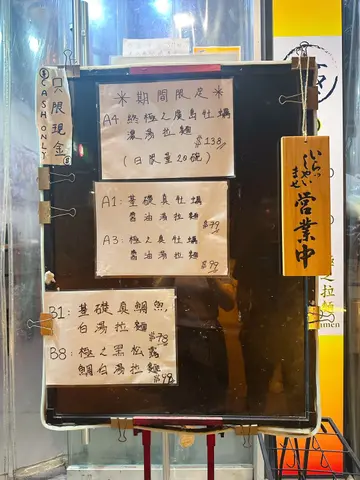 只限現金
CASH ONLY
※期間限定※
A4 終極之廣島牡蠣
濃湯拉麵 $138
(日限量20碗)
A1: 基礎真牡蠣
醬油湯拉麵 $79
A3: 極之真牡蠣
醬油湯拉麵 $99
B1: 基礎真鯛魚,
白湯拉麵 $78
B8: 極之黑松露
鯛白湯拉麵 $98
いらっしゃいませ
営業中
極之拉麵
men